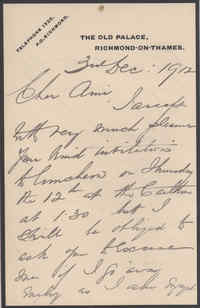 TELEPHONE 1920,
P.O. RICHMOND.
THE OLD PALACE,
RICHMOND-ON-THAMES.
3rd Dec: 1912
Cher Ami
I accept
with very much pleasure
your kind invitation
to luncheon on Thursday
the 12th at the Carlton
at 1:30 but I
shall be obliged to
ask you to excuse
me if I go away
early as I am